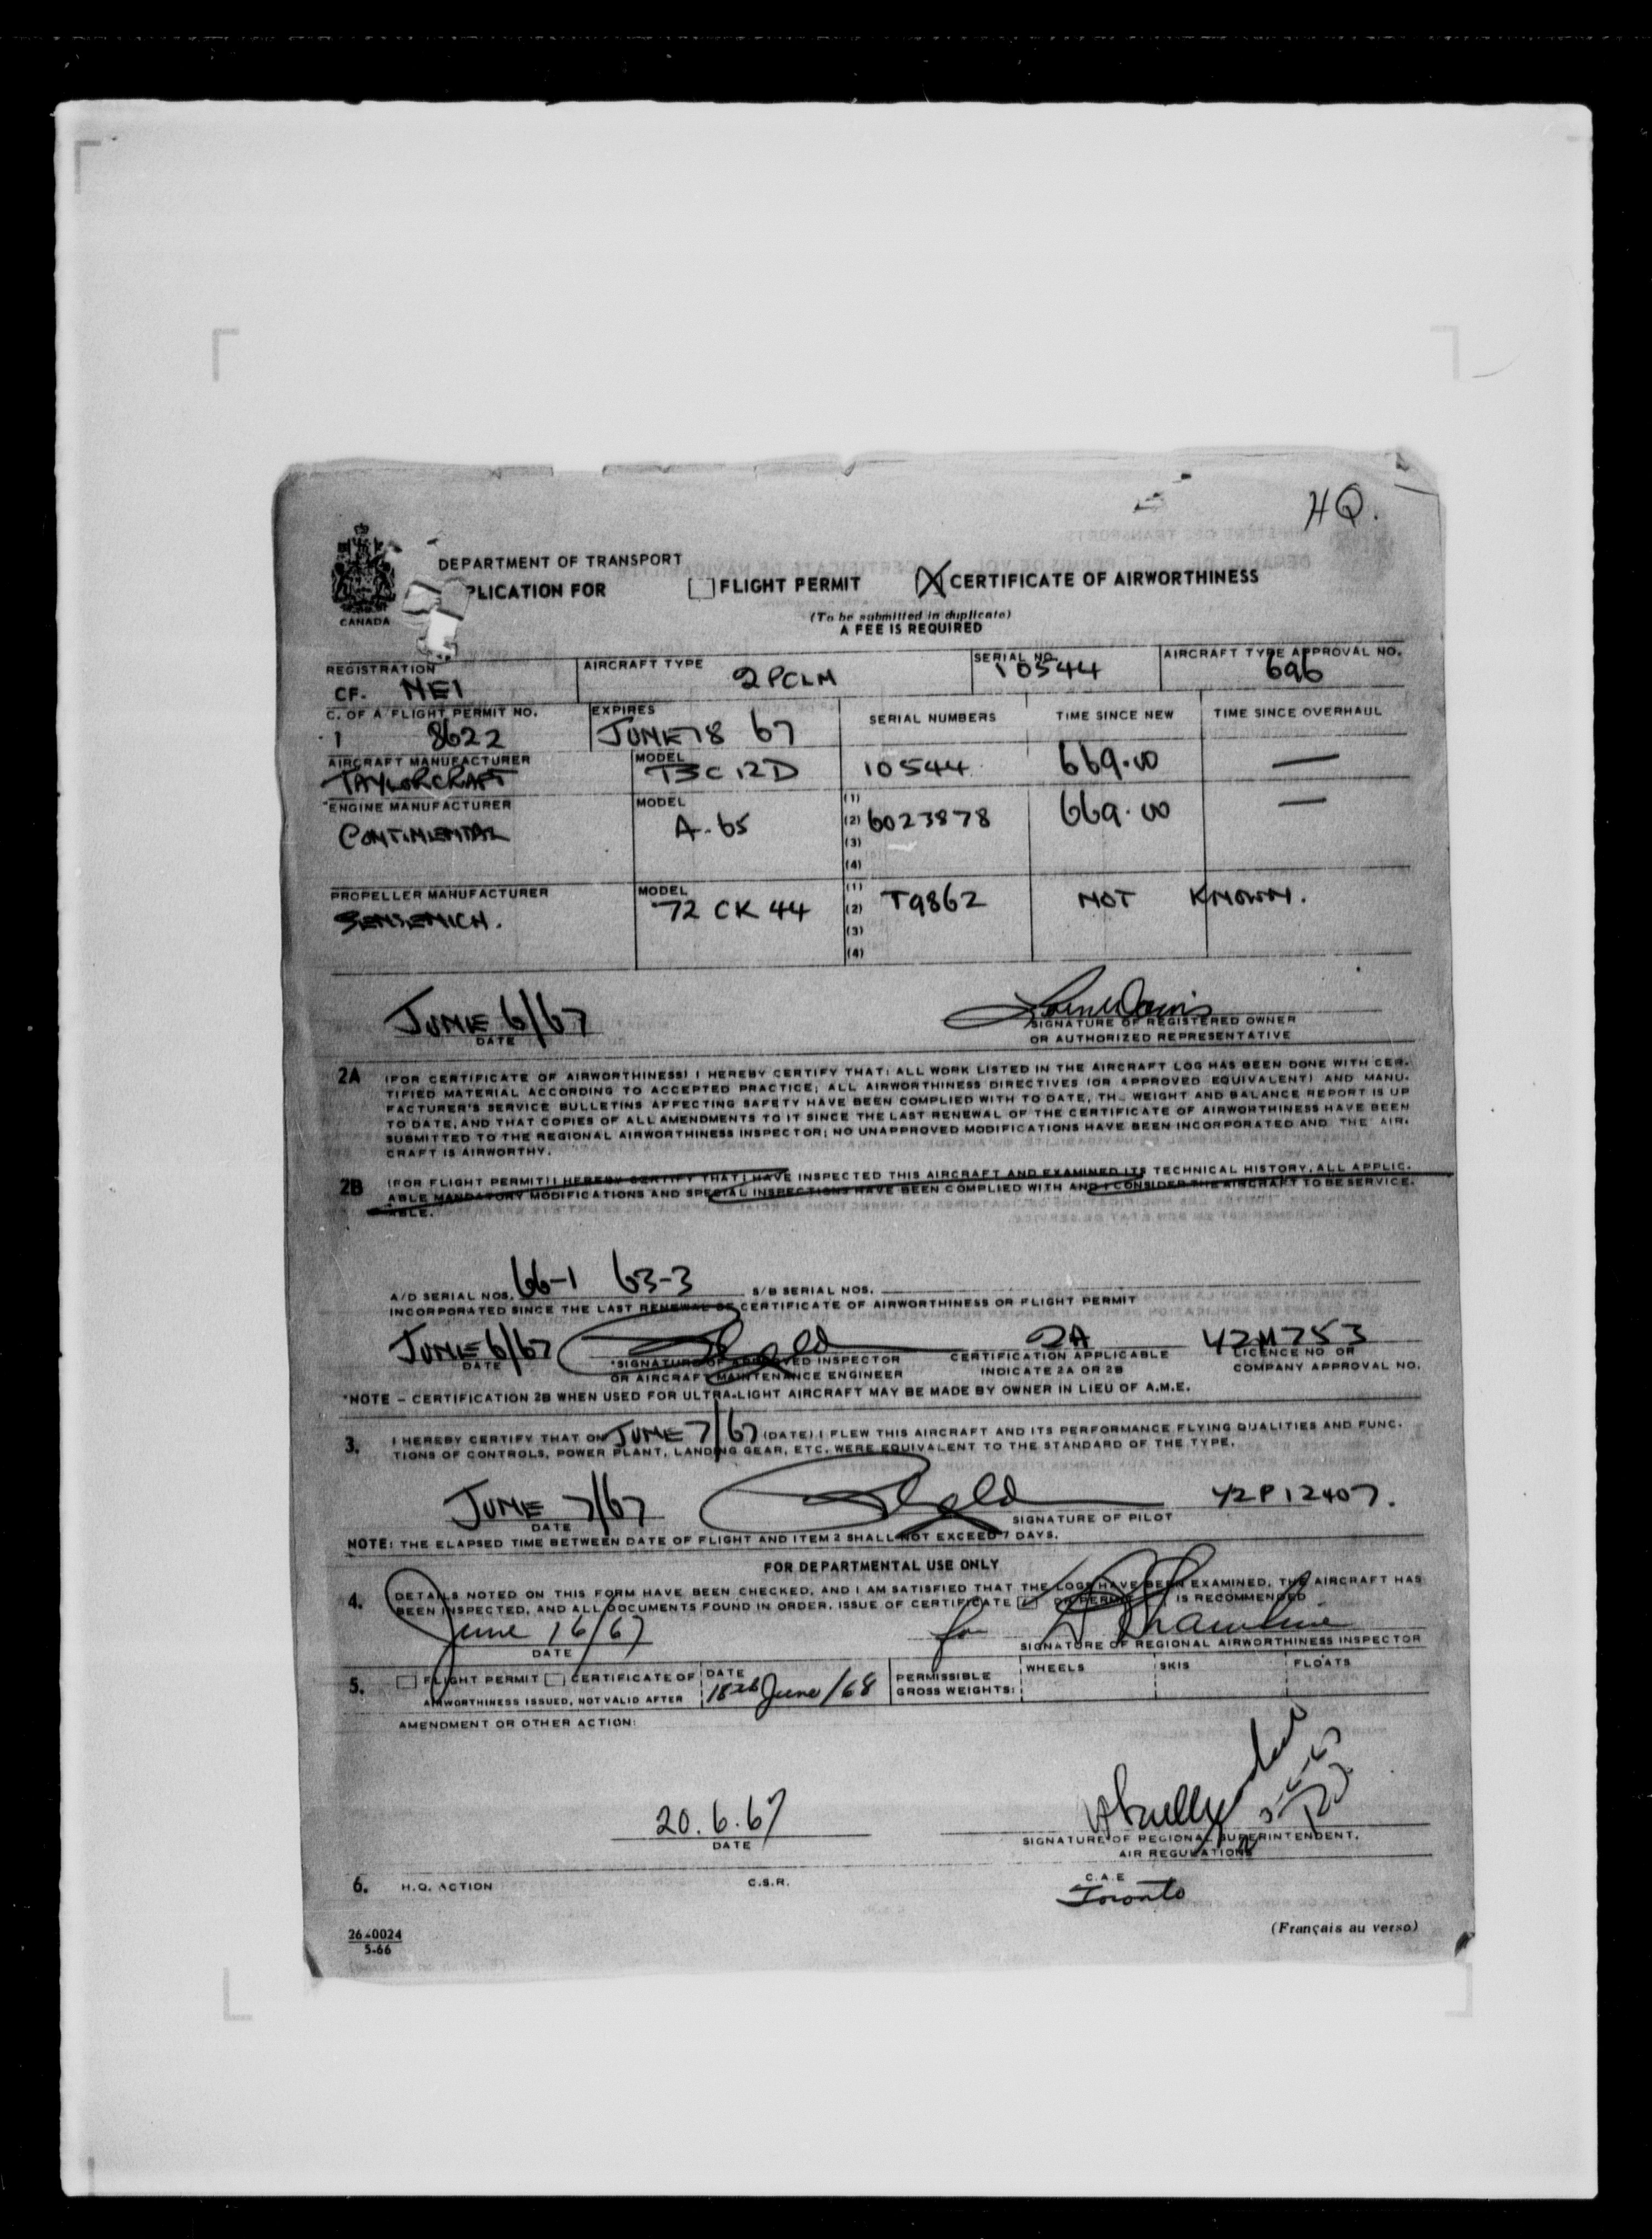 HQ.
DEPARTMENT OF TRANSPORT
PLICATION FOR FLIGHT PERMIT CERTIFICATE OF AIRWORTHINESS
CANADA
(To be submitted in duplicate)
A FEE IS REQUIRED
REGISTRATION AIRCRAFT TYPE SERIAL NO. AIRCRAFT TYPE APPROVAL NO.
CF. NEI 2PCLM 10544 696
C. OF A FLIGHT PERMIT NO. EXPIRES SERIAL NUMBERS TIME SINCE NEW TIME SINCE OVERHAUL
8622 JUNE 18 67
AIRCRAFT MANUFACTURER MODEL
TAYLORCRAFT BC12D 10544 669.00 —
ENGINE MANUFACTURER MODEL (1)
CONTINENTAL A-65 (2) 6023878 669.00 —
(3)
(4)
PROPELLER MANUFACTURER MODEL (1)
SENSENICH. 72 CK 44 (2) T9862 NOT KNOWN.
(3)
(4)
JUNE 6/67
DATE
SIGNATURE OF REGISTERED OWNER
OR AUTHORIZED REPRESENTATIVE
2A (FOR CERTIFICATE OF AIRWORTHINESS) I HEREBY CERTIFY THAT: ALL WORK LISTED IN THE AIRCRAFT LOG HAS BEEN DONE WITH CER-
TIFIED MATERIAL ACCORDING TO ACCEPTED PRACTICE; ALL AIRWORTHINESS DIRECTIVES (OR APPROVED EQUIVALENT) AND MANU-
FACTURER'S SERVICE BULLETINS AFFECTING SAFETY HAVE BEEN COMPLIED WITH TO DATE, TH_ WEIGHT AND BALANCE REPORT IS UP
TO DATE, AND THAT COPIES OF ALL AMENDMENTS TO IT SINCE THE LAST RENEWAL OF THE CERTIFICATE OF AIRWORTHINESS HAVE BEEN
SUBMITTED TO THE REGIONAL AIRWORTHINESS INSPECTOR; NO UNAPPROVED MODIFICATIONS HAVE BEEN INCORPORATED AND THE AIR-
CRAFT IS AIRWORTHY.
2B (FOR FLIGHT PERMIT) I HEREBY CERTIFY THAT I HAVE INSPECTED THIS AIRCRAFT AND EXAMINED ITS TECHNICAL HISTORY, ALL APPLIC-
ABLE MANDATORY MODIFICATIONS AND SPECIAL INSPECTIONS HAVE BEEN COMPLIED WITH AND I CONSIDER THE AIRCRAFT TO BE SERVICE-
ABLE.
A/D SERIAL NOS. 66-1 63-3 S/B SERIAL NOS.
INCORPORATED SINCE THE LAST RENEWAL OF CERTIFICATE OF AIRWORTHINESS OR FLIGHT PERMIT
JUNE 6/67 2A YZM753
DATE *SIGNATURE OF APPROVED INSPECTOR CERTIFICATION APPLICABLE LICENCE NO OR
OR AIRCRAFT MAINTENANCE ENGINEER INDICATE 2A OR 2B COMPANY APPROVAL NO.
*NOTE – CERTIFICATION 2B WHEN USED FOR ULTRA-LIGHT AIRCRAFT MAY BE MADE BY OWNER IN LIEU OF A.M.E.
3. I HEREBY CERTIFY THAT ON JUNE 7/67 (DATE) I FLEW THIS AIRCRAFT AND ITS PERFORMANCE FLYING QUALITIES AND FUNC-
TIONS OF CONTROLS, POWER PLANT, LANDING GEAR, ETC. WERE EQUIVALENT TO THE STANDARD OF THE TYPE.
JUNE 7/67 YZP12407.
DATE SIGNATURE OF PILOT
NOTE: THE ELAPSED TIME BETWEEN DATE OF FLIGHT AND ITEM 2 SHALL NOT EXCEED 7 DAYS.
FOR DEPARTMENTAL USE ONLY
4. DETAILS NOTED ON THIS FORM HAVE BEEN CHECKED, AND I AM SATISFIED THAT THE LOGS HAVE BEEN EXAMINED, THE AIRCRAFT HAS
BEEN INSPECTED, AND ALL DOCUMENTS FOUND IN ORDER. ISSUE OF CERTIFICATE OR PERMIT IS RECOMMENDED
June 16/67 for
DATE SIGNATURE OF REGIONAL AIRWORTHINESS INSPECTOR
5. FLIGHT PERMIT CERTIFICATE OF DATE PERMISSIBLE WHEELS SKIS FLOATS
AIRWORTHINESS ISSUED, NOT VALID AFTER 18th June/68 GROSS WEIGHTS:
AMENDMENT OR OTHER ACTION:
20.6.67
DATE SIGNATURE OF REGIONAL SUPERINTENDENT,
AIR REGULATIONS
6. H.Q. ACTION C.S.R. C.A.E
Toronto
26-0024
5-66
(Français au verso)